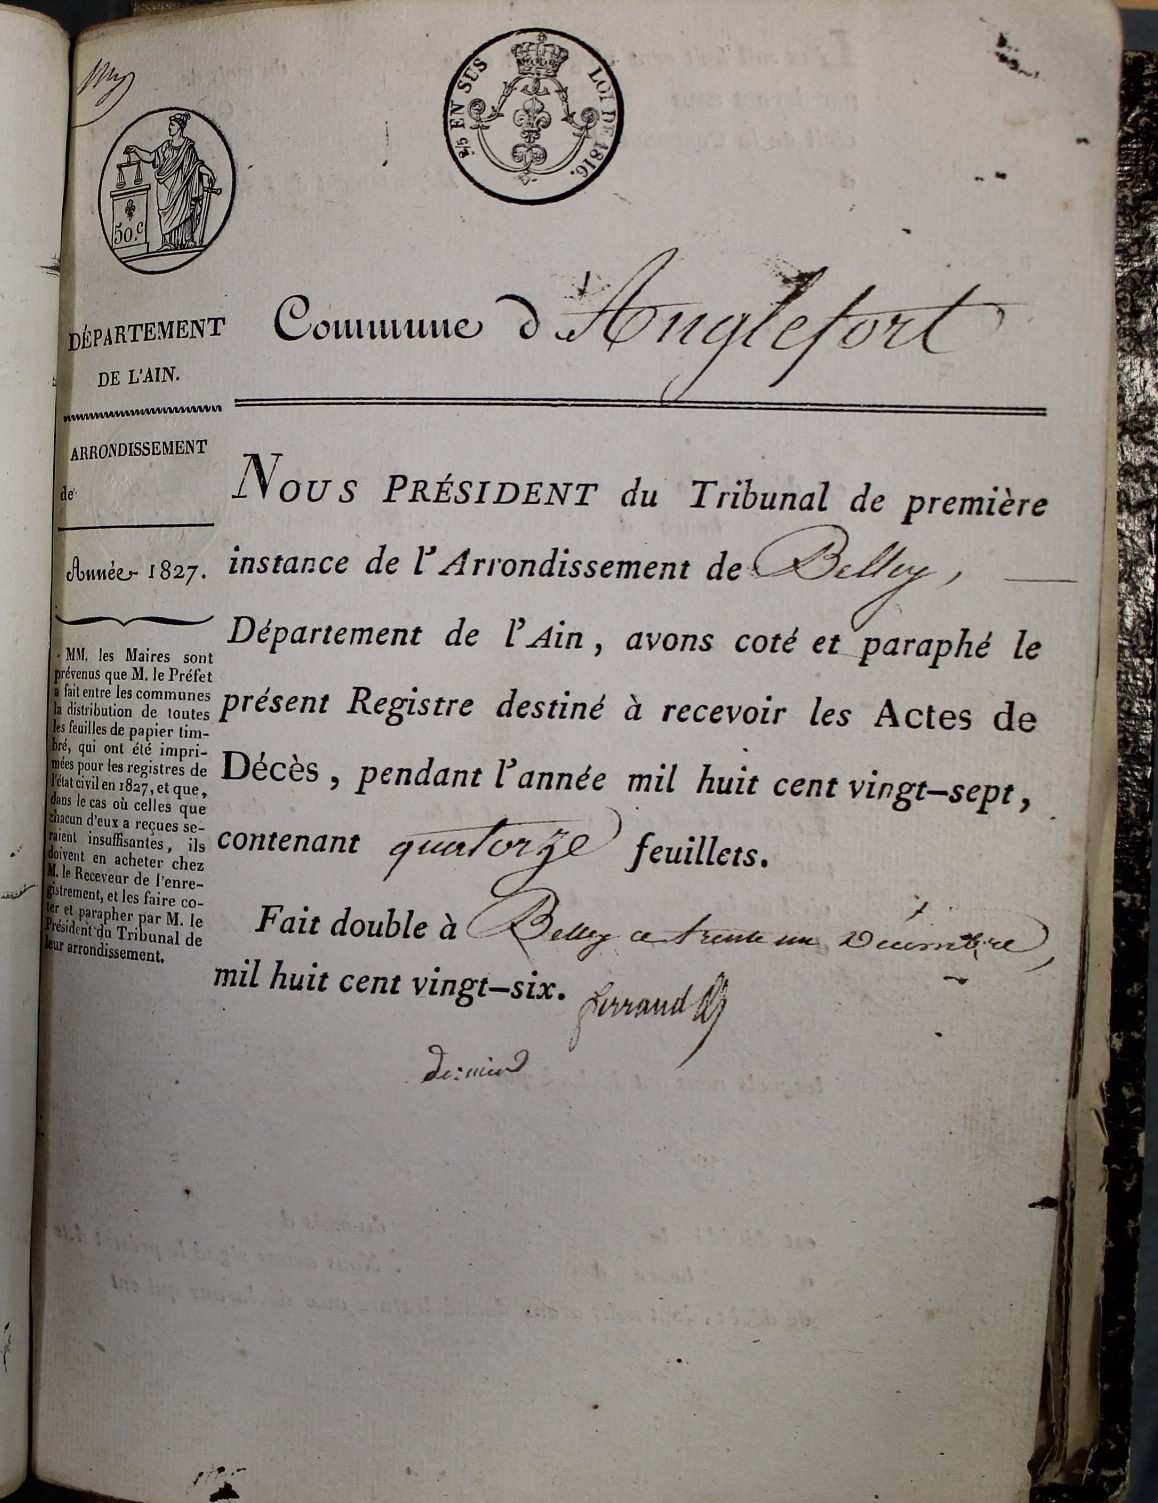 2/5 EN SUS LOI DE 1816.
50.c
DÉPARTEMENT
DE L'AIN.
Commune d'Anglefort
ARRONDISSEMENT
de
Année 1827.
MM. les Maires sont
prévenus que M. le Préfet
a fait entre les communes
la distribution de toutes
les feuilles de papier tim-
bré, qui ont été impri-
mées pour les registres de
l'état civil en 1827, et que,
dans le cas où celles que
chacun d'eux a reçues se-
raient insuffisantes, ils
doivent en acheter chez
M. le Receveur de l'enre-
gistrement, et les faire co-
ter et parapher par M. le
Président du Tribunal de
leur arrondissement.
NOUS PRÉSIDENT du Tribunal de première
instance de l'Arrondissement de Belley,
Département de l'Ain, avons coté et paraphé le
présent Registre destiné à recevoir les Actes de
Décès, pendant l'année mil huit cent vingt-sept,
contenant quatorze feuillets.
Fait double à Belley ce trente un Décembre,
mil huit cent vingt-six.